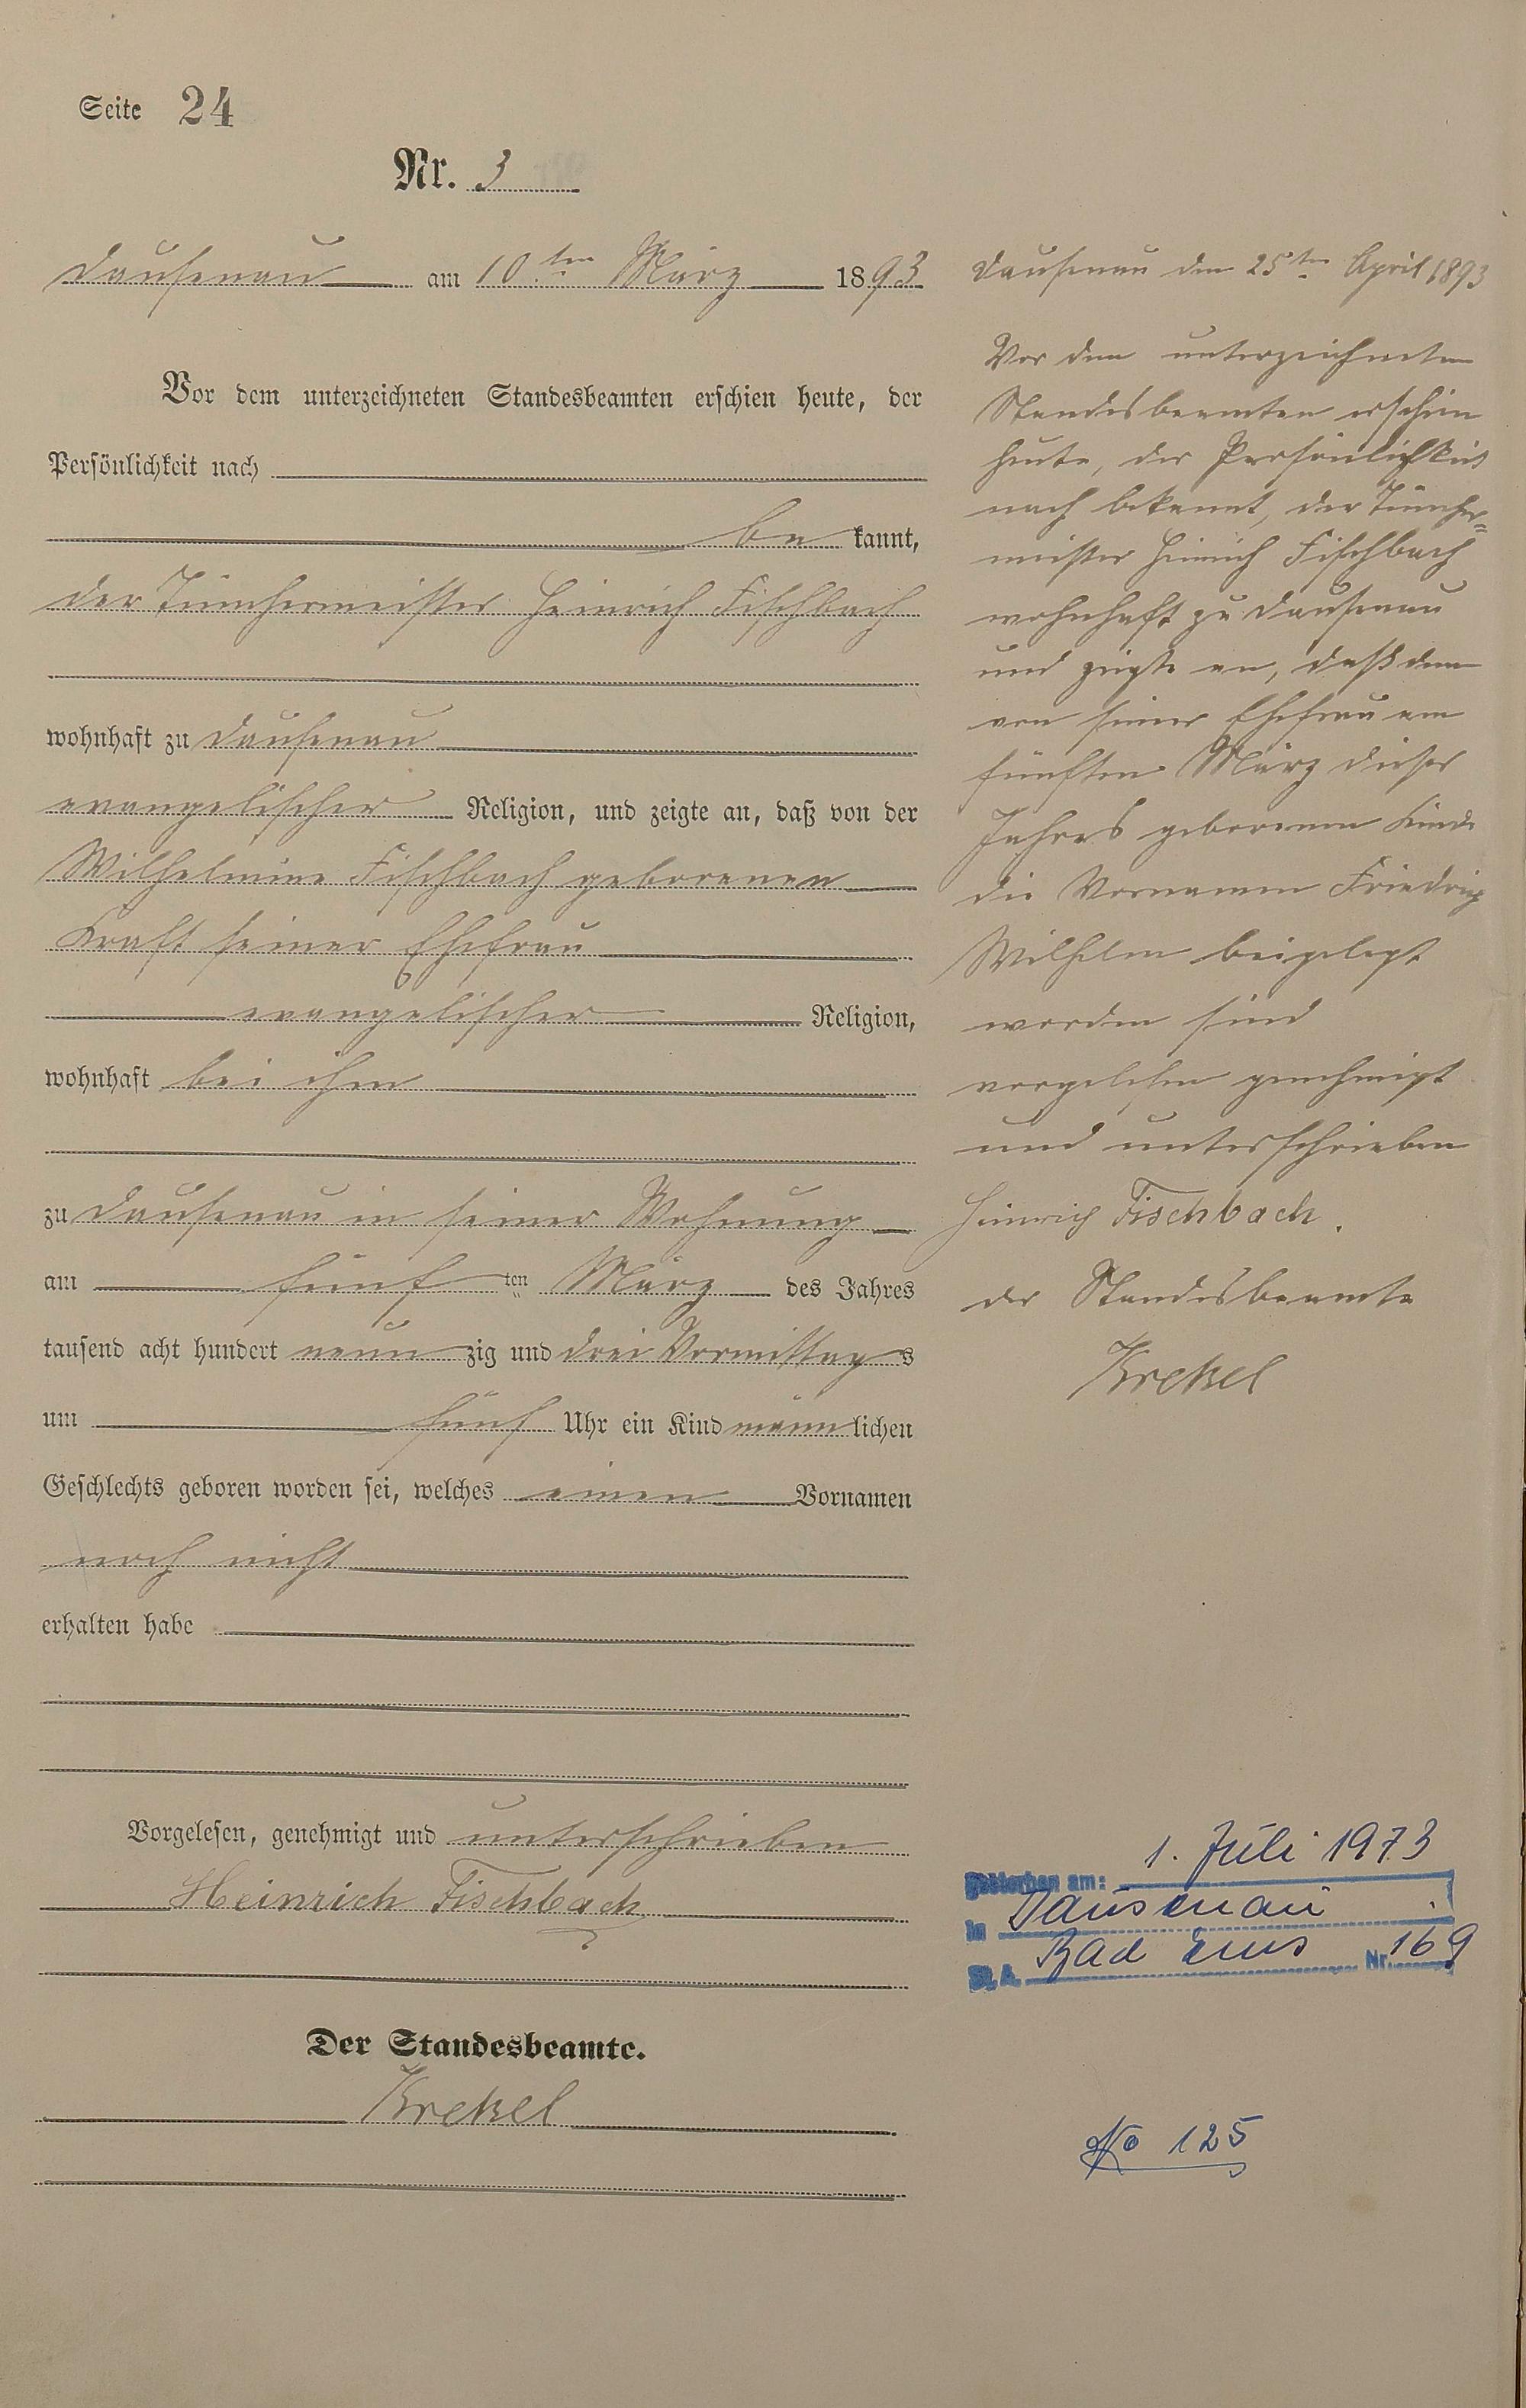 Seite 24
Nr. 3
Dausenau am 10ten März 1893
Vor dem unterzeichneten Standesbeamten erschien heute, der
Persönlichkeit nach
be kannt,
der Tünchermeister Heinrich Fischbach
wohnhaft zu Dausenau
evangelischer Religion, und zeigte an, daß von der
Wilhelmine Fischbach geborenen
Kraft seiner Ehefrau
evangelischer Religion,
wohnhaft bei ihm
zu Dausenau in seiner Wohnung
am fünf ten März des Jahres
tausend acht hundert neun zig und drei Vormittags
um fünf Uhr ein Kind männ lichen
Geschlechts geboren worden sei, welches einen Vornamen
noch nicht
erhalten habe
Vorgelesen, genehmigt und unterschrieben
Heinrich Fischbach
Der Standesbeamte.
Krekel
Dausenau den 25ten April 1893
Vor dem unterzeichneten
Standesbeamten erschien
heute, der Persönlichkeit
nach bekannt, der Tüncher=
meister Heinrich Fischbach
wohnhaft zu Dausenau
und zeigte an, daß dem
von seiner Ehefrau am
fünften März dieses
Jahres geborenen Kinde
die Vornamen Friedrich
Wilhelm beigelegt
worden sind
vorgelesen genehmigt
und unterschrieben
Heinrich Fischbach.
der Standesbeamte
Krekel
Gestorben am: 1. Juli 1973
in Dausenau
St. A. Bad Ems Nr. 169
125